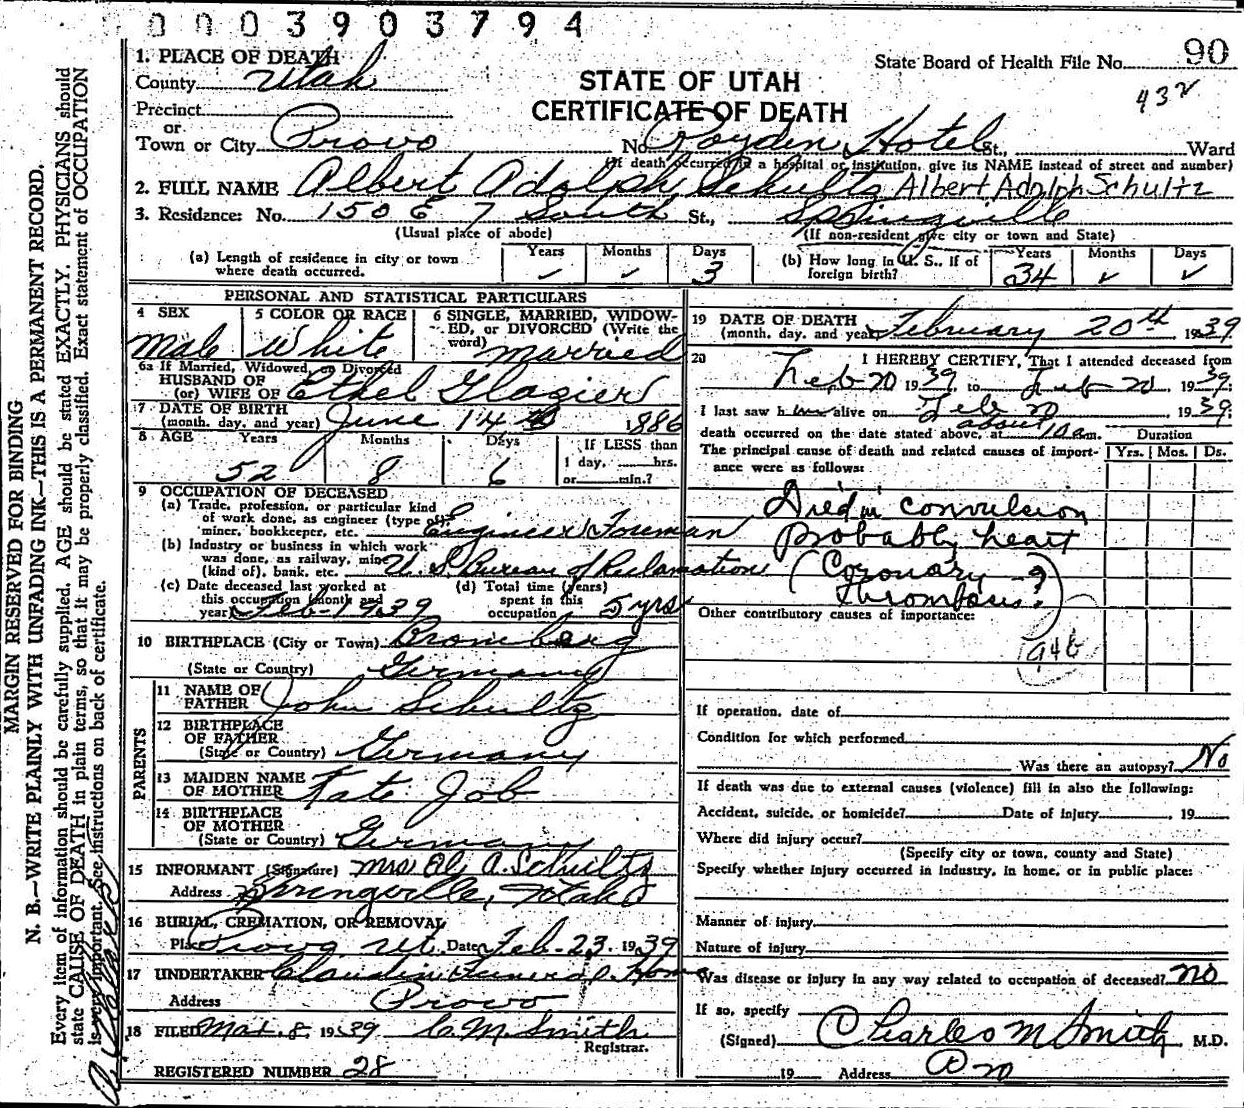 0003903794
1. PLACE OF DEATH
State Board of Health File No. 90
County Utah
STATE OF UTAH
432
Precinct
CERTIFICATE OF DEATH
or
Town or City Provo No. Royden Hotel St., Ward
(If death occurred in a hospital or institution, give its NAME instead of street and number)
2. FULL NAME Albert Adolph Schultz Albert Adolph Schultz
3. Residence: No. 150 E 7 South St., Springville
(Usual place of abode) (If non-resident give city or town and State)
(a) Length of residence in city or town where death occurred. Years ✓ Months ✓ Days 3
(b) How long in U. S., if of foreign birth? Years 34 Months ✓ Days ✓
PERSONAL AND STATISTICAL PARTICULARS
4 SEX Male
5 COLOR OR RACE White
6 SINGLE, MARRIED, WIDOWED, or DIVORCED (Write the word) married
6a If Married, Widowed, or Divorced
HUSBAND OF
(or) WIFE OF Ethel Glazier
7 DATE OF BIRTH
(month, day, and year) June 14th 1886
8 AGE Years 52 Months 8 Days 6 If LESS than 1 day, hrs. or min.?
9 OCCUPATION OF DECEASED
(a) Trade, profession, or particular kind
of work done, as engineer (type of),
miner, bookkeeper, etc. Engineer Foreman
(b) Industry or business in which work
was done, as railway, mine
(kind of), bank, etc. U. S. Bureau of Reclamation
(c) Date deceased last worked at
this occupation (month and
year) Feb - 1939
(d) Total time (years)
spent in this
occupation 5 yrs
10 BIRTHPLACE (City or Town) Bromberg
(State or Country) Germany
PARENTS
11 NAME OF
FATHER John Schultz
12 BIRTHPLACE
OF FATHER
(State or Country) Germany
13 MAIDEN NAME
OF MOTHER Kate Job
14 BIRTHPLACE
OF MOTHER
(State or Country) Germany
15 INFORMANT (Signature) Mrs A. Schultz
Address Springville, Utah
16 BURIAL, CREMATION, OR REMOVAL
Place Provo Ut. Date Feb - 23. 1939
17 UNDERTAKER Claudin Funeral Home
Address Provo
18 FILED Mar. 8, 1939 C. M. Smith
Registrar.
REGISTERED NUMBER 28
19 DATE OF DEATH
(month, day, and year) February 20th 1939
20 I HEREBY CERTIFY, That I attended deceased from
Feb 20 1939, to Feb 20, 1939.
I last saw him alive on Feb 20 1939;
about
death occurred on the date stated above, at 10 a m.
Duration
The principal cause of death and related causes of importance were as follows:
Yrs. Mos. Ds.
Died in convulsion
Probably heart
(Coronary
Thrombosis?)
Other contributory causes of importance:
94b
If operation, date of
Condition for which performed
Was there an autopsy? No
If death was due to external causes (violence) fill in also the following:
Accident, suicide, or homicide? Date of injury , 19
Where did injury occur?
(Specify city or town, county and State)
Specify whether injury occurred in industry, in home, or in public place:
Manner of injury
Nature of injury
Was disease or injury in any way related to occupation of deceased? no
If so, specify
(Signed) Charles M Smith, M.D.
19 Address
MARGIN RESERVED FOR BINDING
N. B.—WRITE PLAINLY WITH UNFADING INK—THIS IS A PERMANENT RECORD.
Every item of information should be carefully supplied. AGE should be stated EXACTLY. PHYSICIANS should
state CAUSE OF DEATH in plain terms, so that it may be properly classified. Exact statement of OCCUPATION
is very important. See instructions on back of certificate.